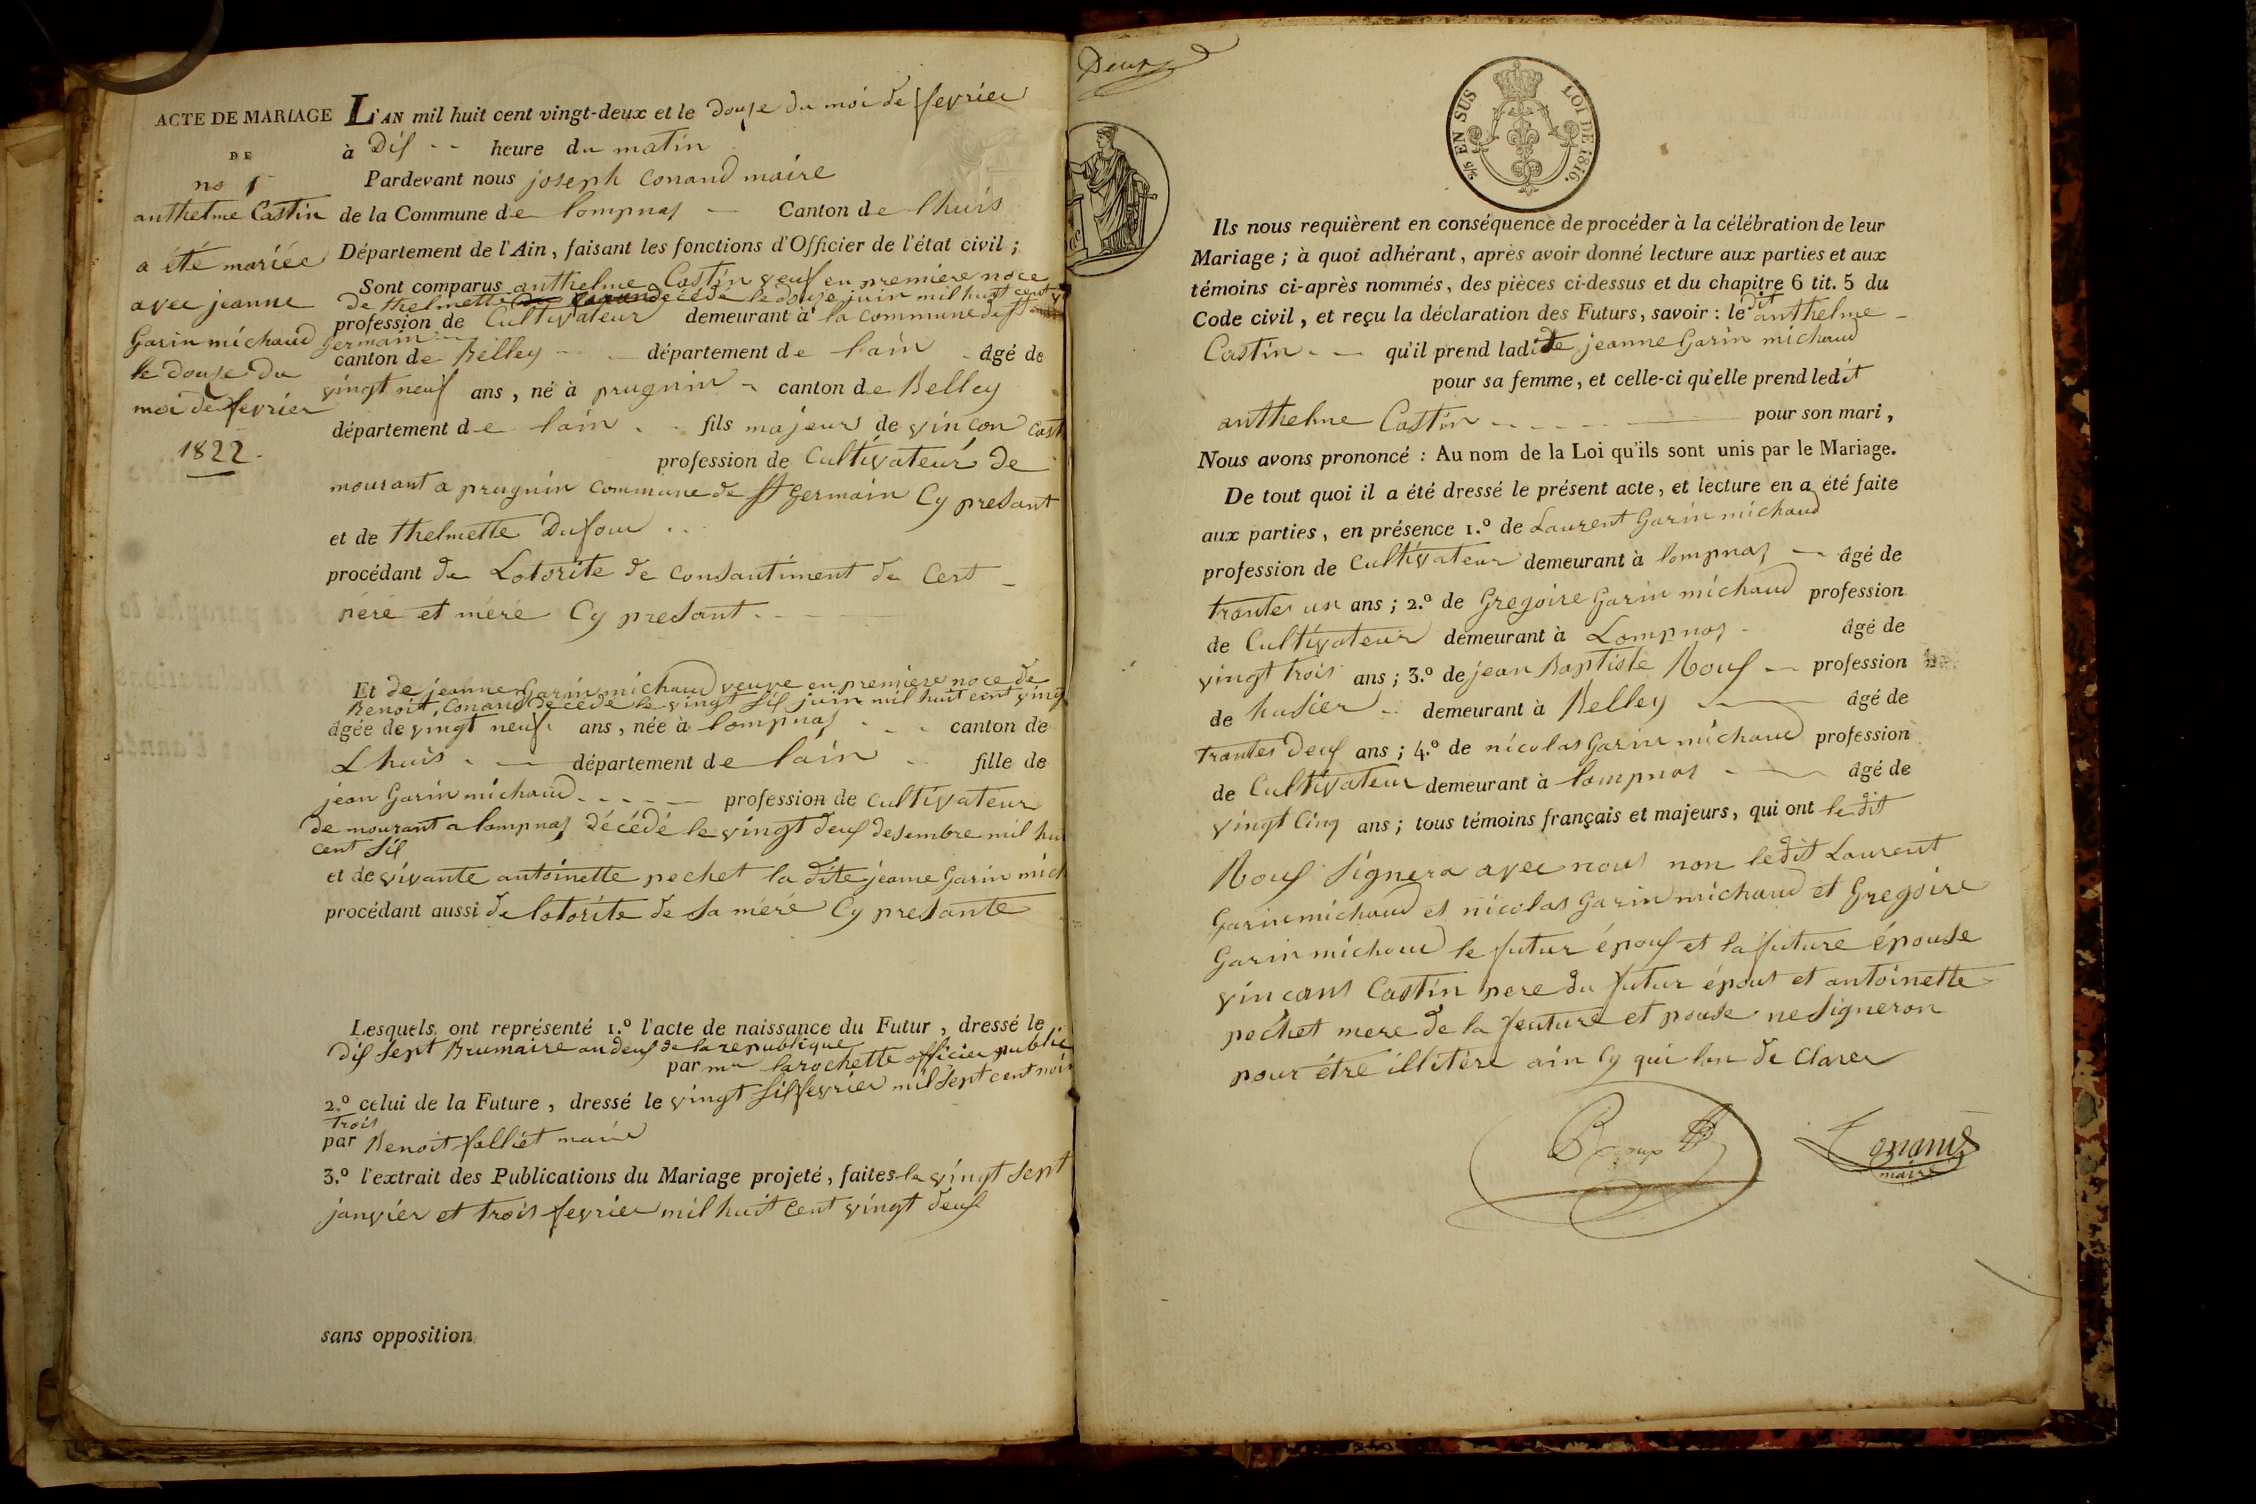 ACTE DE MARIAGE
DE
no 1
anthelme Castin
a été mariée
avec jeanne
Garin michaud
le douze du
moi de fevrier
1822.
L'AN mil huit cent vingt-deux et le douze du moi de fevrier
à Dis heure du matin
Pardevant nous joseph conand maire
de la Commune de lompnas Canton de lhuis
Département de l'Ain, faisant les fonctions d'Officier de l'état civil ;
Sont comparus anthelme Castin veuf en premiere noce
de thelmette decédé le douze juin mil huit cent
profession de Cultivateur demeurant à la commune de st
germain
canton de Belley département de lain âgé de
vingt neuf ans, né à prugnin canton de Belley
département de lain fils majeur de vincon Cast
profession de Cultivateur de
mourant a prugnin commune de st germain Cy presant
et de thelmette Dufour
procédant de Lotorite de consantiment de Cest
péré et méré Cy presant
Et de jeanne Garin michaud veuve en premiere noce de
Benoit Conand decede le vingt sis juin mil huit cent ving
âgée de vingt neuf ans, née à lompnas canton de
Lhuis département de lain fille de
jean Garin michaud profession de cultivateur
de mourant a lompnas décédé le vingt deus desembre mil hui
cent sis
et de vivante antoinette pechet la dite jeanne Garin mich
procédant aussi de lotorite de sa méré Cy presante
Lesquels ont représenté 1.° l'acte de naissance du Futur, dressé le
dis sept Brumaire an deus de la republique
par mr larochette officier public
2.° celui de la Future, dressé le vingt sis fevrier mil sept cent
trois
par Benoit falliet maire
3.° l'extrait des Publications du Mariage projeté, faites le vingt sept
janvier et trois fevrier mil huit cent vingt deus
sans opposition
Deux
2/5 EN SUS LOI DE 1816.
Ils nous requièrent en conséquence de procéder à la célébration de leur
Mariage ; à quoi adhérant, après avoir donné lecture aux parties et aux
témoins ci-après nommés, des pièces ci-dessus et du chapitre 6 tit. 5 du
Code civil, et reçu la déclaration des Futurs, savoir : le dit anthelme
Castin qu'il prend ladite jeanne Garin michaud
pour sa femme, et celle-ci qu'elle prend ledit
anthelme Castin pour son mari,
Nous avons prononcé : Au nom de la Loi qu'ils sont unis par le Mariage.
De tout quoi il a été dressé le présent acte, et lecture en a été faite
aux parties, en présence 1.° de Laurent Garin michaud
profession de Cultivateur demeurant à lompnas âgé de
trantes un ans ; 2.° de Gregoire Garin michaud profession
de Cultivateur demeurant à Lompnas âgé de
vingt trois ans ; 3.° de jean Baptiste Rous profession
de husier demeurant à Belley âgé de
trantes deus ans ; 4.° de nicolas Garin michaud profession
de Cultivateur demeurant à lompnas âgé de
vingt Cinq ans ; tous témoins français et majeurs, qui ont le dit
Rous signera avec nous non ledit Laurent
Garin michaud et nicolas Garin michaud et Gregoire
Garin michaud le futur épous et la future épouse
vincant Castin pere du futur épous et antoinette
pechet mere de la feuture et pouse ne signeron
pour étré illitére ain Cy qui lon de Clarer
Conand
maire